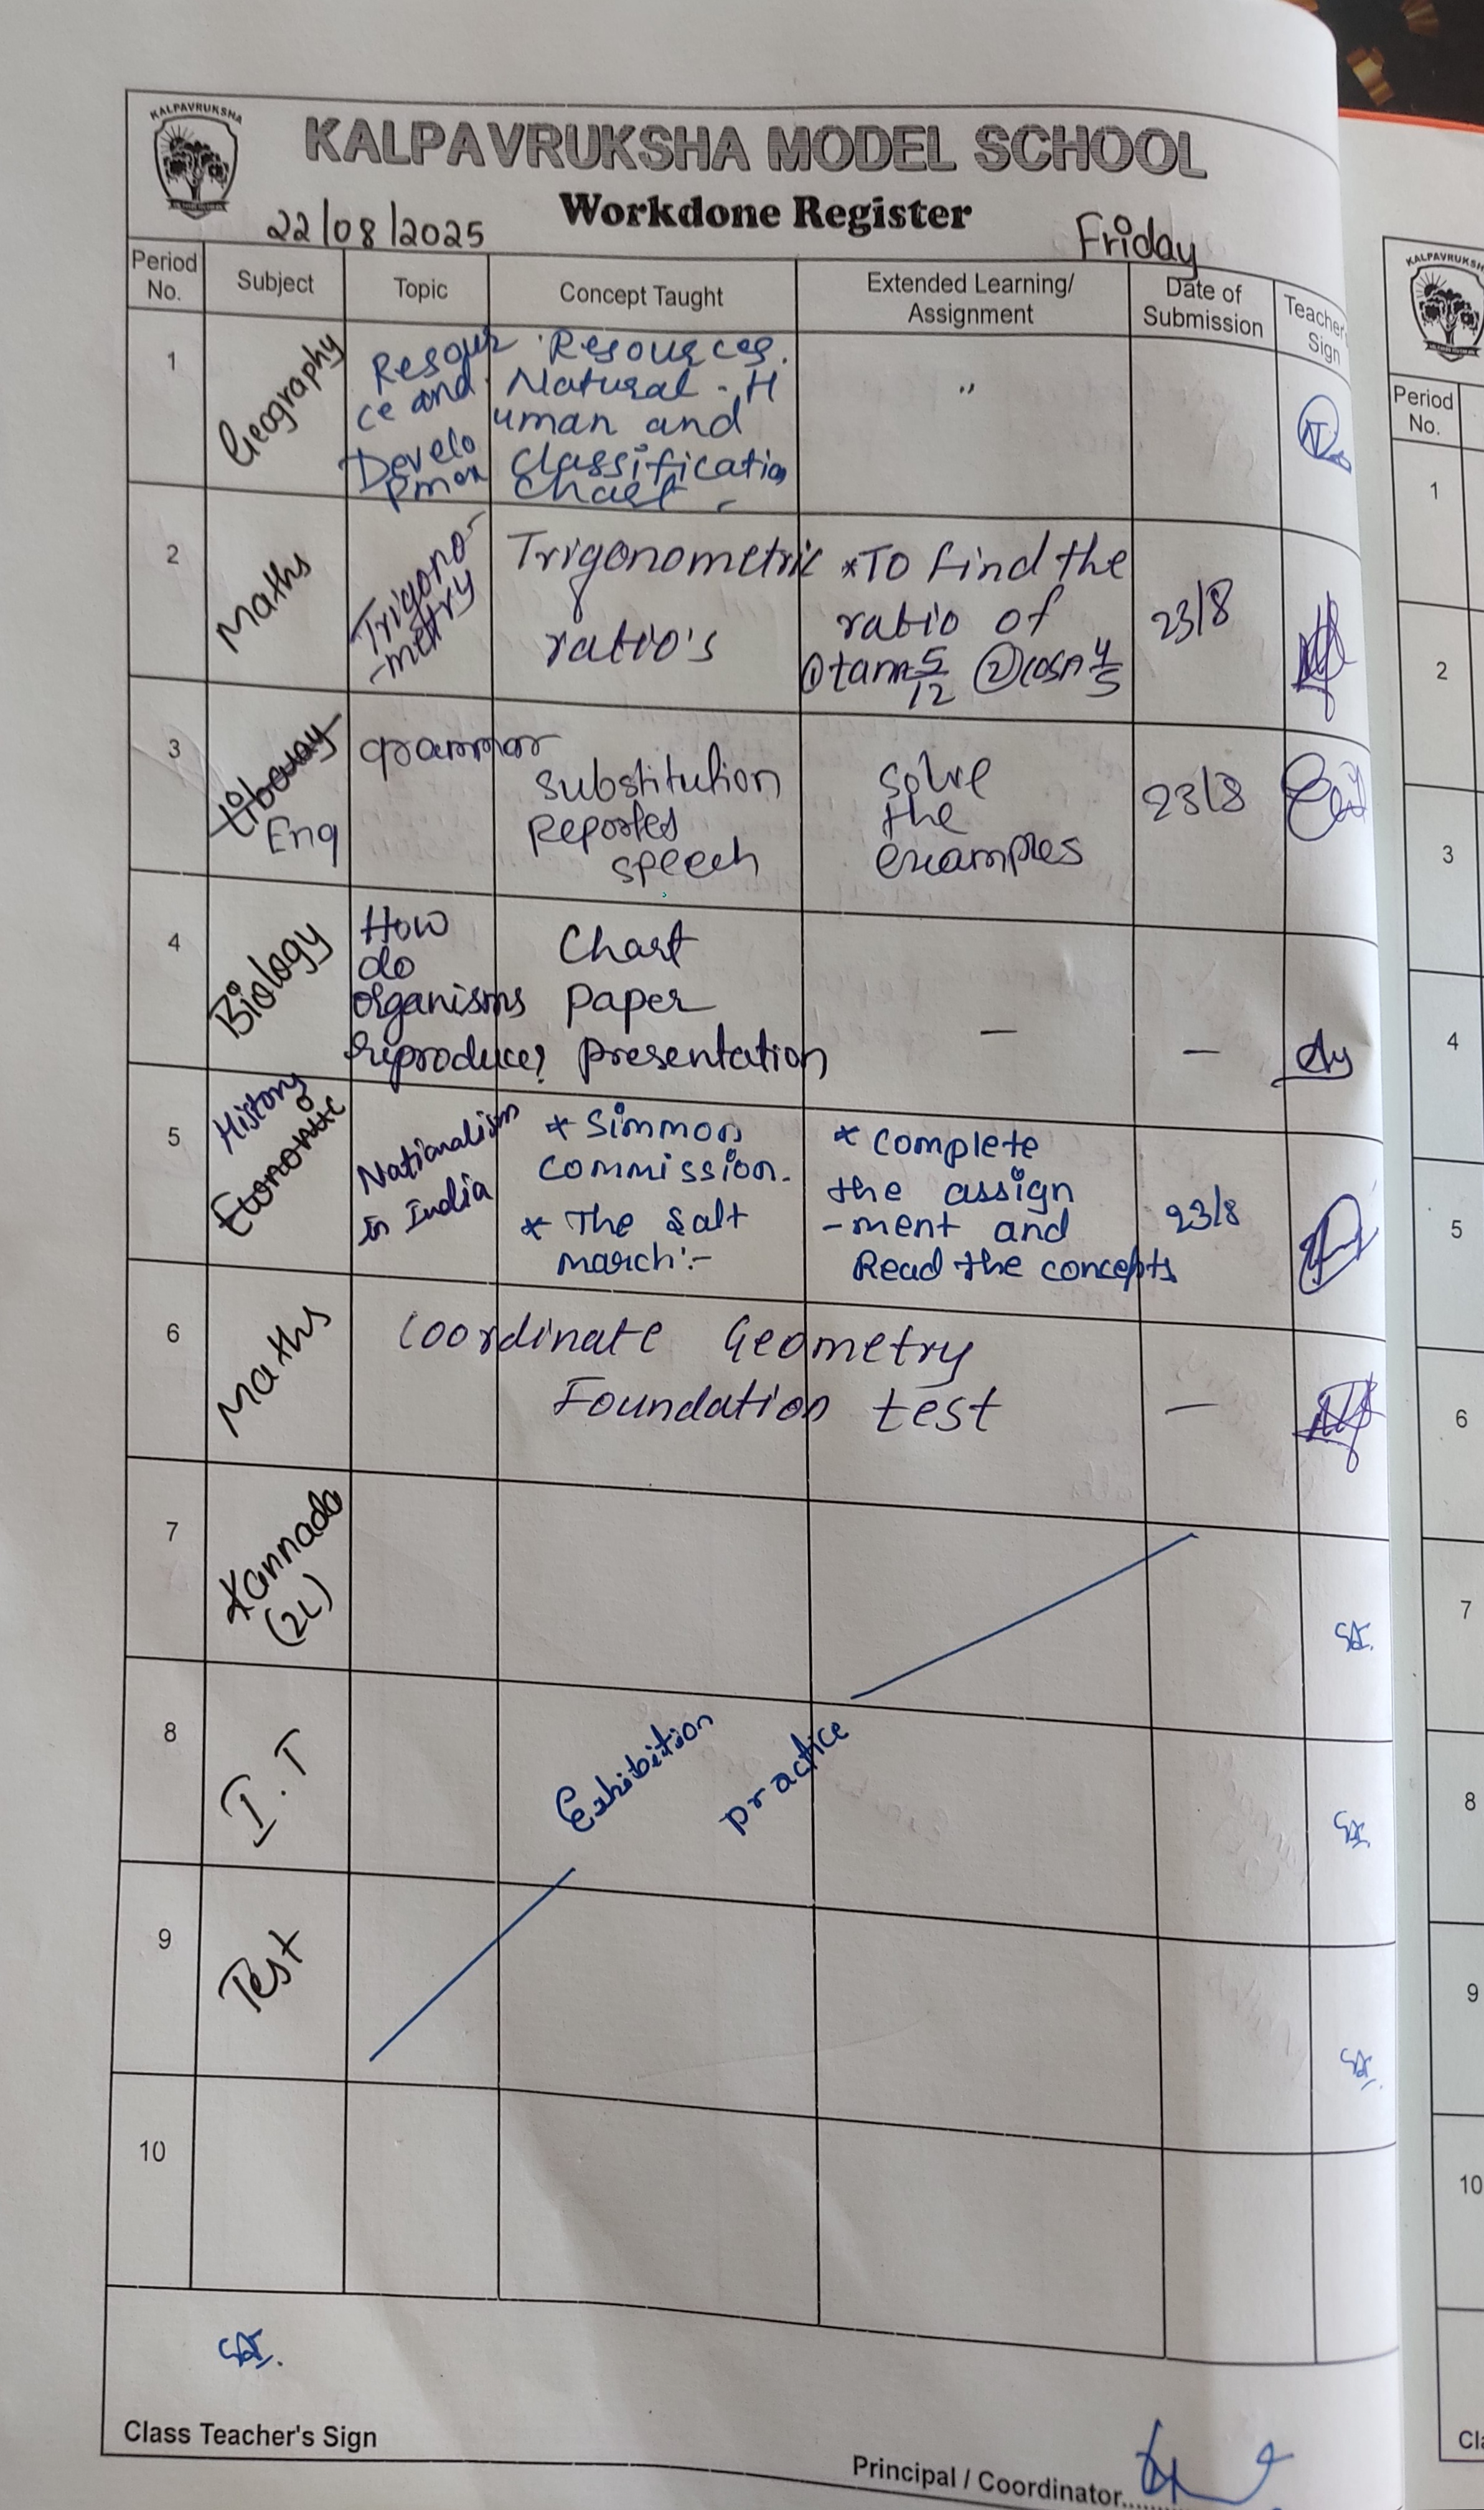 KALPAVRUKSHA
KALPAVRUKSHA MODEL SCHOOL
Workdone Register
22/08/2025
Friday
Period No.
Subject
Topic
Concept Taught
Extended Learning/ Assignment
Date of Submission
Teacher Sign
1
Geography
Resour
ce and
Develo
pmen
Resources.
Natural - H
uman and
Classification
Chart -
"
2
Maths
Trigono-
-metry
Trigonometric
ratio's
*To find the
ratio of
① tan 5/12 ② cosn 4/5
23/8
3
Library
Eng
grammar
substitution
Reported
speech
solve
the
examples
23/8
4
Biology
How
do
organisms
reproduce?
Chart
paper
presentation
—
—
5
History
Economic
Nationalism
in India
* Simmon
commission.
* The Salt
march:-
* Complete
the assign
-ment and
Read the concepts
23/8
6
Maths
Coordinate Geometry
Foundation test
—
7
Kannada
(2L)
8
I.T
Exhibition practice
9
Test
10
Class Teacher's Sign
Principal / Coordinator......
KALPAVRUKSH
Period
No.
1
2
3
4
5
6
7
8
9
10
Cla